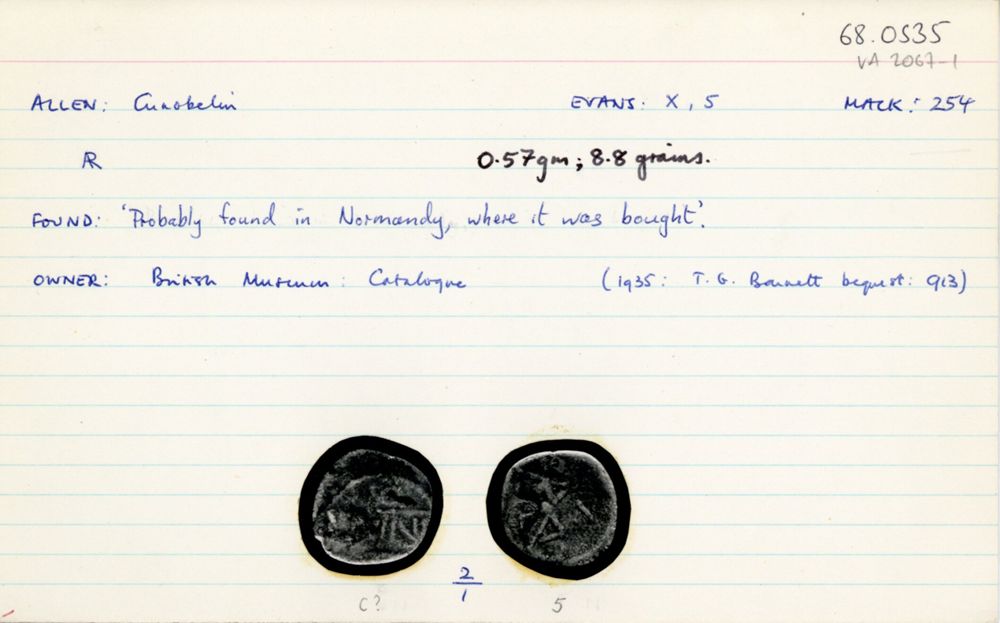 68.0535
VA 2067-1
ALLEN: Cunobelin EVANS: X, 5 MACK: 254
AR 0.57gm; 8.8 grains.
FOUND: 'Probably found in Normandy, where it was bought'.
OWNER: British Museum: Catalogue (1935: T. G. Barnett bequest: 913)
2/1
C? 5